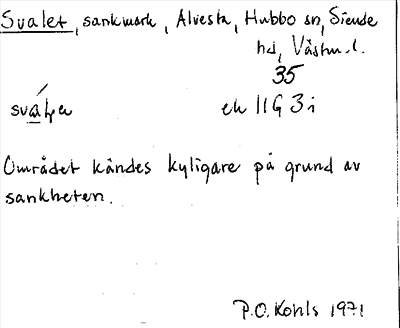 Svalet, sankmark, Alvesta, Hubbo sn, Siende
hd, Västm. l.
35
ek 11G 3i
Området kändes kyligare på grund av
sankheten.
P.O. Kohls 1971